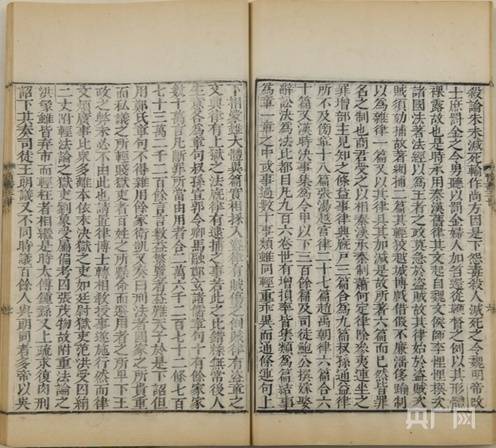 殺論朱朱減死輸作尚方因是下怨毒殺人減死之令魏明帝改
士庶罰金之令男聽以罰金婦人加笞還從鞭督之例以其形體
裸露故也是時承用秦漢舊律其文起自魏文侯師李悝悝撰次
諸國法著法經以爲王者之政莫急於盜賊故其律始於盜賊盜
賊須劾捕故著網捕二篇其輕狡越城博戲借假不廉淫侈踰制
以爲雜律一篇又以具律具其加減是故所著六篇而已然皆罪
名之制也商君受之以相秦漢承秦制蕭何定律除參夷連坐之
罪增部主見知之條益事律興廐戶三篇合爲九篇叔孫通益律
所不及傍章十八篇張湯越宮律二十七篇趙禹朝律六篇合六
十篇又漢時決事集爲令甲以下三百餘篇及司徒鮑公撰嫁娶
辭訟決爲法比都目凡九百六卷世有增損率皆集類爲篇結事
爲章一章之中或事過數十事類雖同輕重乖異而通條連句上
下相蒙雖大體異篇實相採入盜律有賊傷之例賊律有盜章之
文興律有上獄之法廐律有逮捕之事若此之比錯糅無常後人
生意各爲章句叔孫宣郭令卿馬融鄭玄諸儒章句十有餘家家
數十萬言凡斷罪所當由用者合二萬六千二百七十二條七百
七十三萬二千二百餘言言數益繁覽者益難天子於是下詔但
用鄭氏章句不得雜用餘家衛覬又奏曰刑法者國家之所貴重
而私議之所輕賤獄吏者百姓之所懸命而選用者之所卑下王
政之弊未必不由此也請置律博士轉相教授事遂施行然而律
文煩廣事比衆多離本依末決獄之吏如廷尉獄吏范洪受囚絹
二丈附輕法論之獄吏劉象受屬偏考囚張茂物故附重法論之
洪象雖皆棄市而輕枉者相繼是時太傅鍾繇又上疏求復肉刑
詔下其奏司徒王朗議又不同時議者百餘人與朗同者多帝以吳
央广网